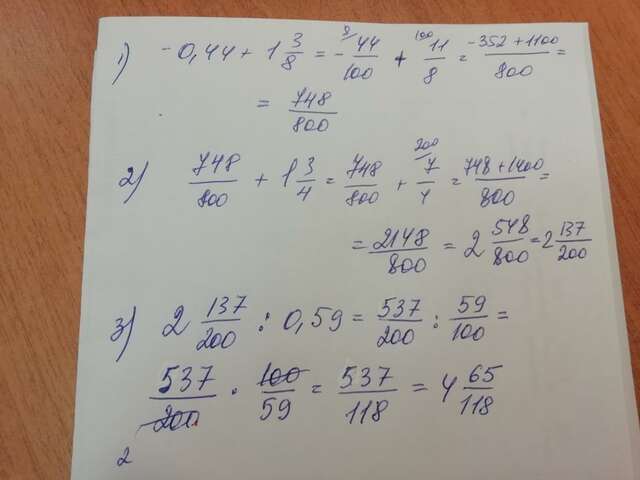 1) -0,44 + 1 3/8 = - 44/100 (8 + 11/8 (100 = (-352 + 1100)/800 =
= 748/800
2) 748/800 + 1 3/4 = 748/800 + 7/4 (200 = (748 + 1400)/800 =
= 2148/800 = 2 548/800 = 2 137/200
3) 2 137/200 : 0,59 = 537/200 : 59/100 =
537/200 · 100/59 = 537/118 = 4 65/118
2